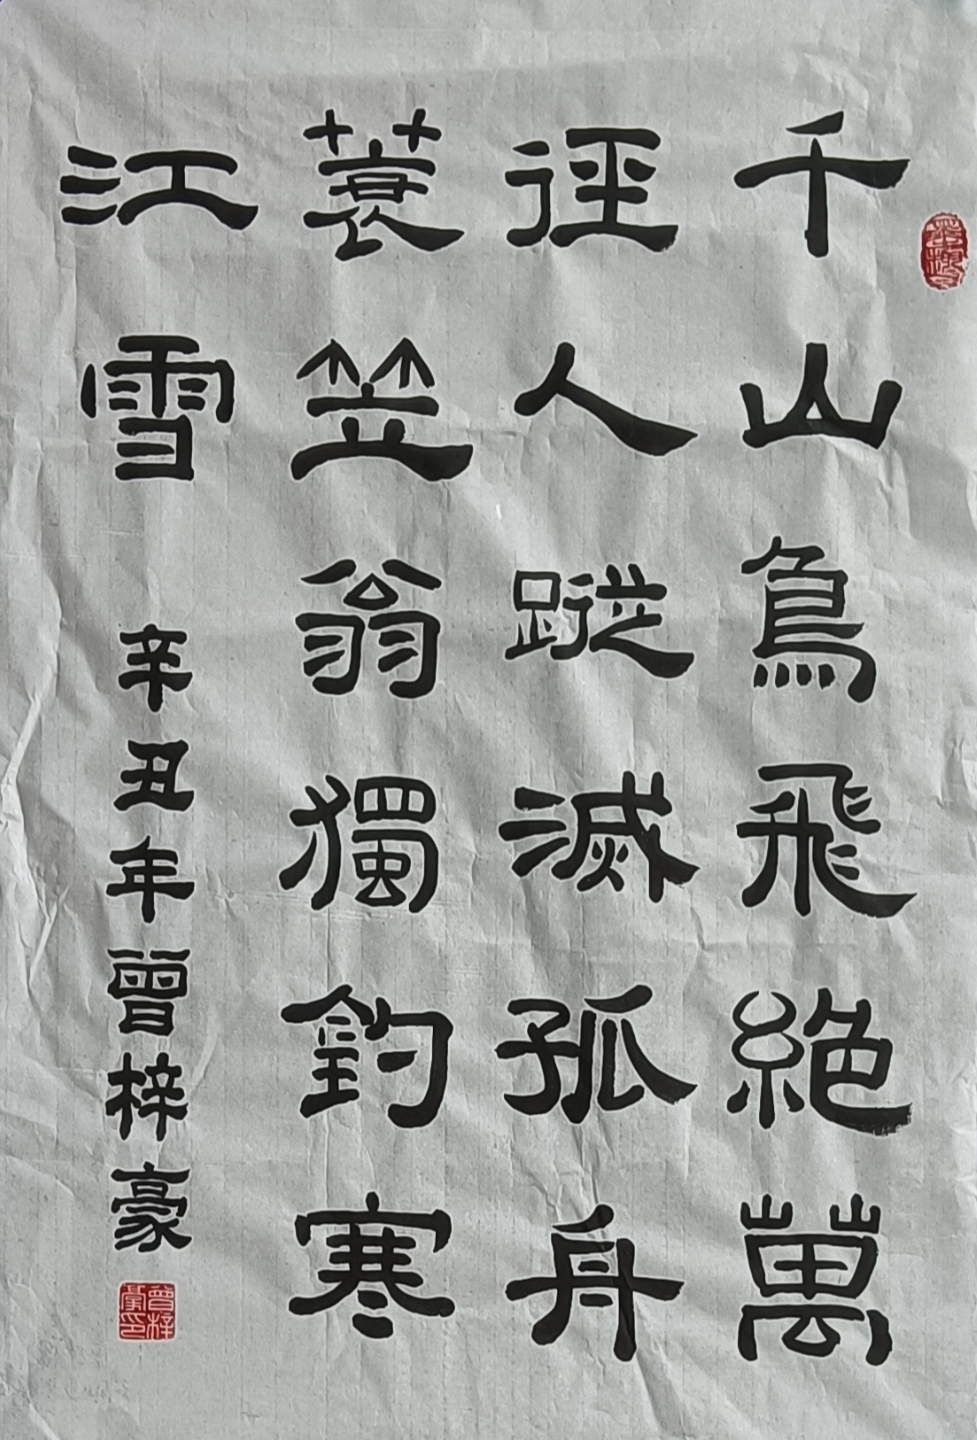 千山鳥飛絶萬
徑人蹤滅孤舟
蓑笠翁獨釣寒
江雪
辛丑年曾梓豪
曾梓豪印